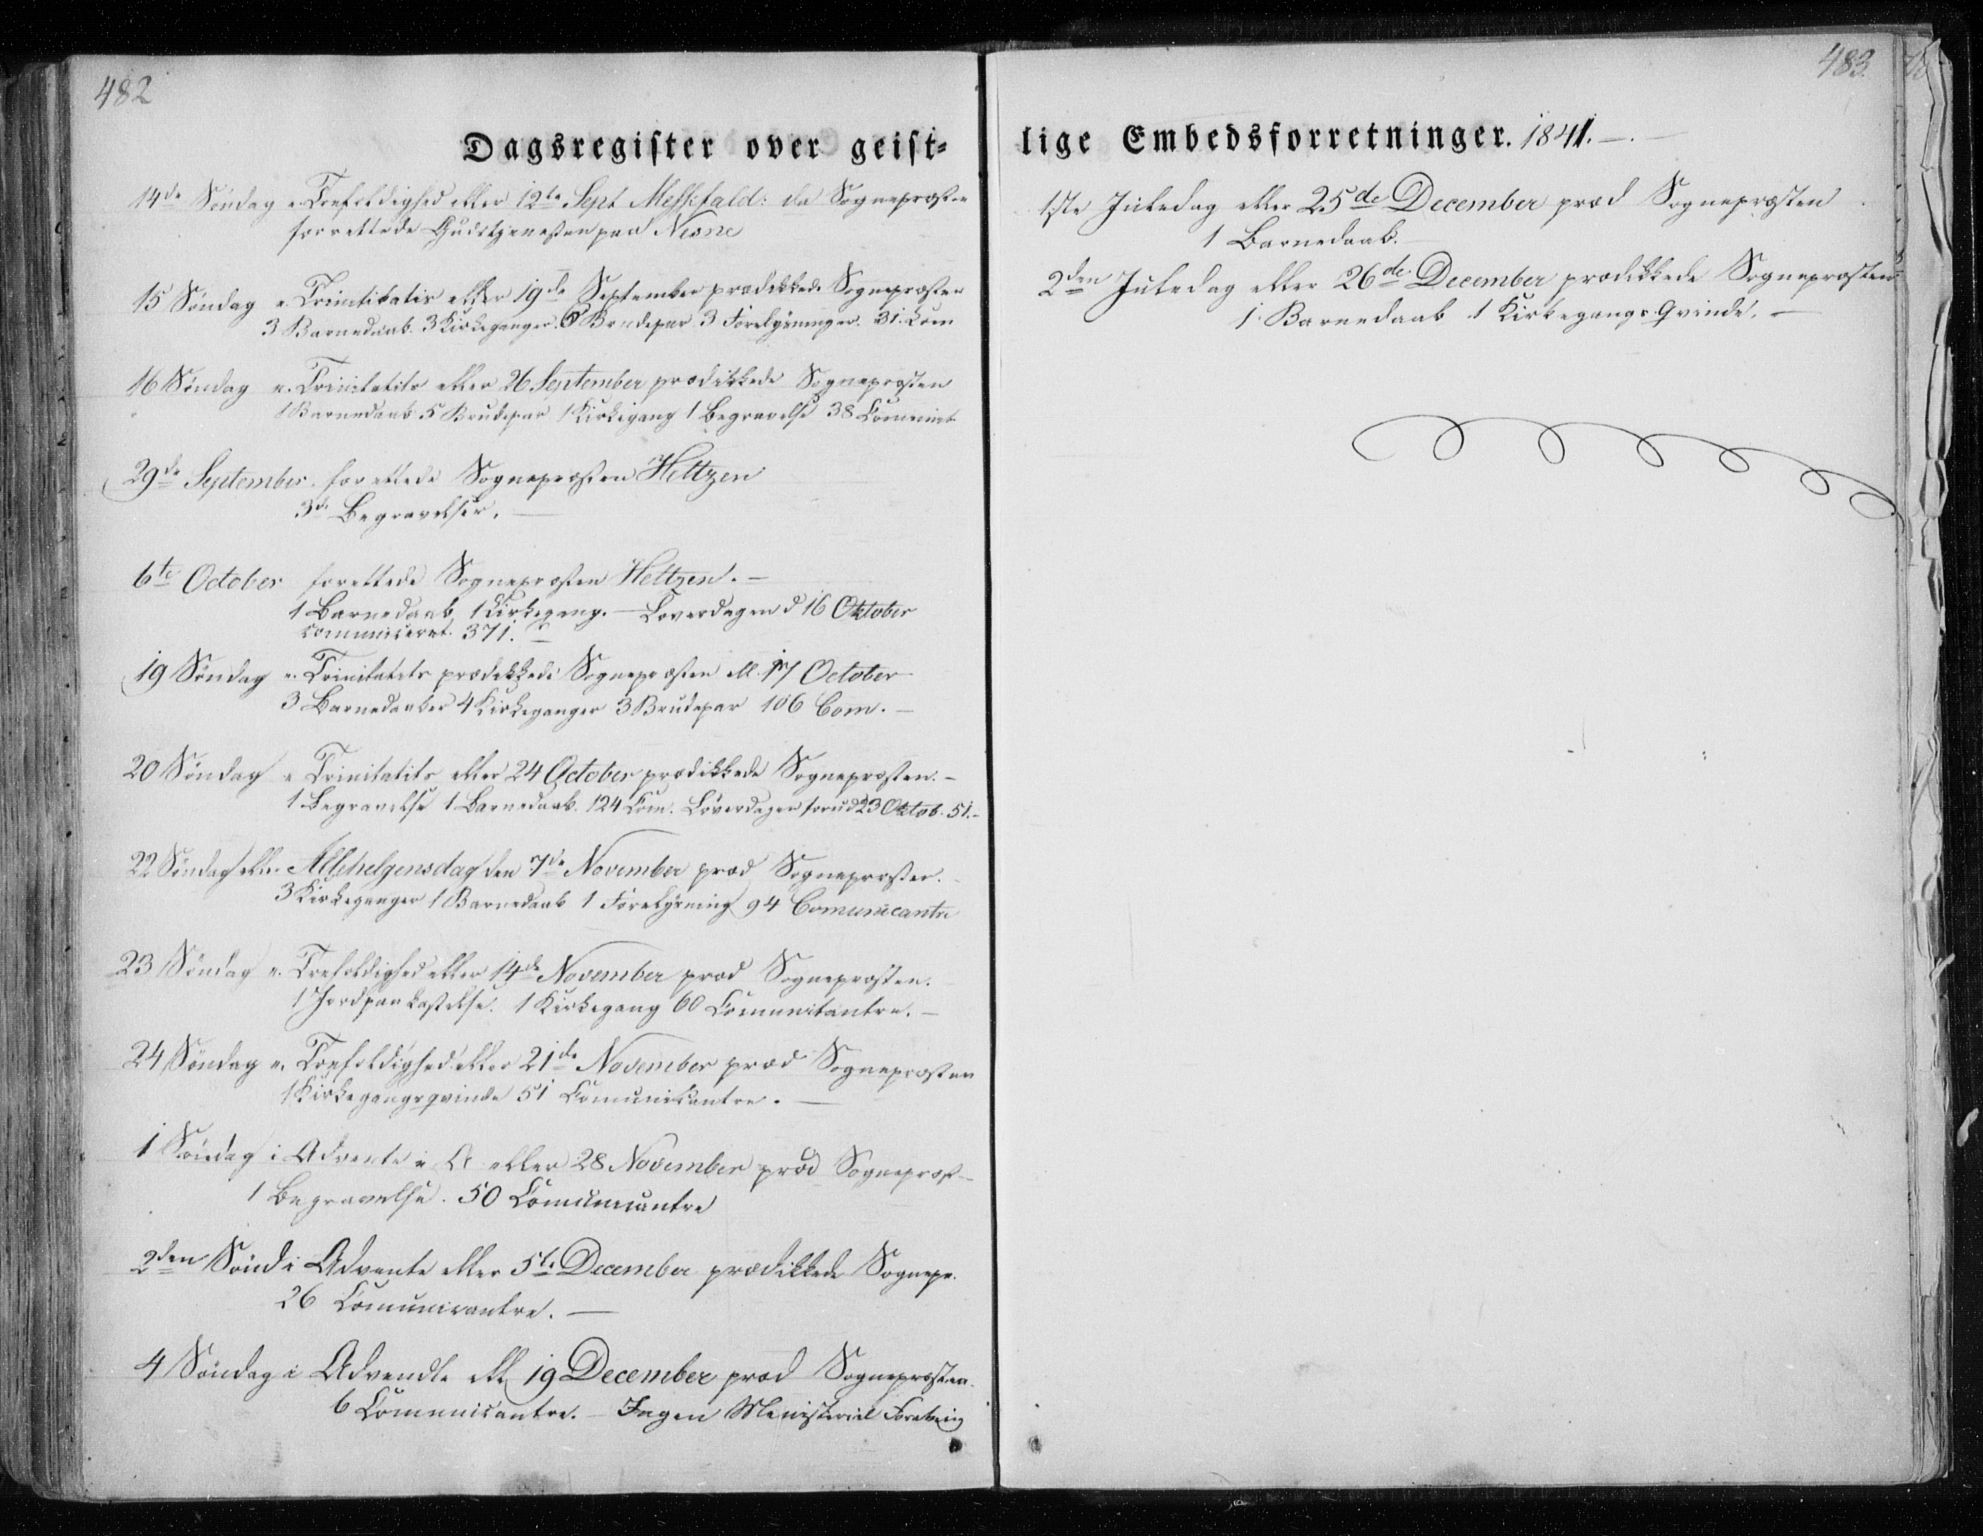 482
Dagsregister over geist-
14de Søndag e. Trefoldighed eller 12te Sept Messefald: da Sognepræsten
forrettede Gudstjenesten paa Nesne
15 Søndag e. Trinitatis eller 19de September prædikkede Sognepræsten
3 Barnedaab. 3 Kirkeganger. 6 Brudepar 3 Forelysninger. 31. Com
16 Søndag e. Trinitatis eller 26 September prædikkede Sognepræsten
1 Barnedaab 5 Brudepar 1 Kirkegang 1 Begravelse 38 Communic
29de September forettede Sognepræsten Heltzen
3de Begravelser.
6te October forettede Sognepræsten Heltzen. —
1 Barnedaab 1 Kirkegang. — Løverdagen d 16 Oktober
communiceret. 371.
19 Søndag e. Trinitatis prædikkede Sognepræsten ell. 17 October
3 Barnedaaber 4 Kirkeganger 3 Brudepar 106 Com. —
20 Søndag e Trinitatits eller 24 October prædikkede Sognepræsten. —
1 Begravelse 1 Barnedaab. 124 Com. Løverdagen forud 23 Oktob. 51. —
22 Søndag eller Allehelgensdag den 7de November præd Sognepræsten.
3 Kirkeganger 1 Barnedaab 1 Forelysning 94 Comunicantre
23 Søndag e. Trefoldighed eller 14de November præd Sognepræsten.
1 Jordpaakastelse. 1 Kirkegang 60 Comunicantre. —
24 Søndag e. Trefoldighed eller 21de November præd Sognepræsten
1 Kirkegangsqvinde 51 Comunicantre. —
1 Søndag i Advente eller 28 November præd Sognepræst
1 Begravelse. 50 Comunicantre
2den Sønd i Advente eller 5te December prædikkede Sognepr.
26 Comunicantre. —
4 Søndag i Advendte ell 19 December præd Sognepræsten.
6 Communicantre. — Ingen Ministeriel Foretning
483.
lige Embedsforretninger. 1841. —
1ste Juledag eller 25de December præd Sognepræsten
1 Barnedaab. —
2den Juledag eller 26de December prædikkede Sognepræsten
1 Barnedaab 1 Kirkegangs Qvinde. —